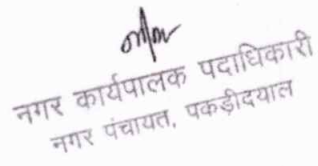 नगर कार्यपालक पदाधिकारी
नगर पंचायत, पकड़ीदयाल